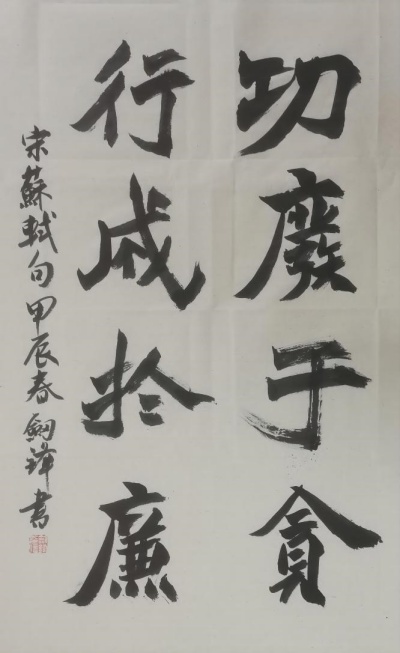 功廢于貪
行成於廉
宋蘇軾句甲辰春劍鋒書